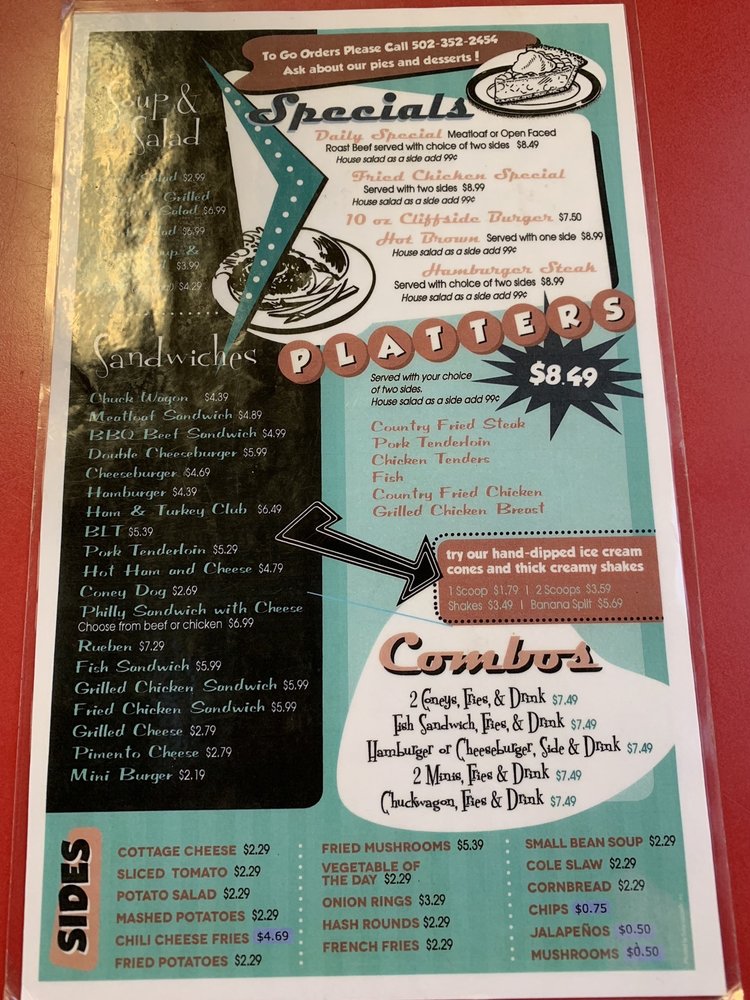 To Go Orders Please Call 502-352-2454
Ask about our pies and desserts !
Soup &
Salad
Salad $2.99
Grilled
Salad $6.99
$6.99
&
$3.99
$4.29
Specials
Daily Special Meatloaf or Open Faced
Roast Beef served with choice of two sides $8.49
House salad as a side add 99¢
Fried Chicken Special
Served with two sides $8.99
House salad as a side add 99¢
10 oz Cliffside Burger $7.50
Hot Brown Served with one side $8.99
House salad as a side add 99¢
Hamburger Steak
Served with choice of two sides $8.99
House salad as a side add 99¢
Sandwiches
Chuck Wagon $4.39
Meatloaf Sandwich $4.89
BBQ Beef Sandwich $4.99
Double Cheeseburger $5.99
Cheeseburger $4.69
Hamburger $4.39
Ham & Turkey Club $6.49
BLT $5.39
Pork Tenderloin $5.29
Hot Ham and Cheese $4.79
Coney Dog $2.69
Philly Sandwich with Cheese
Choose from beef or chicken $6.99
Rueben $7.29
Fish Sandwich $5.99
Grilled Chicken Sandwich $5.99
Fried Chicken Sandwich $5.99
Grilled Cheese $2.79
Pimento Cheese $2.79
Mini Burger $2.19
PLATTERS
$8.49
Served with your choice
of two sides.
House salad as a side add 99¢
Country Fried Steak
Pork Tenderloin
Chicken Tenders
Fish
Country Fried Chicken
Grilled Chicken Breast
try our hand-dipped ice cream
cones and thick creamy shakes
1 Scoop $1.79 | 2 Scoops $3.59
Shakes $3.49 | Banana Split $5.69
Combos
2 Coneys, Fries, & Drink $7.49
Fish Sandwich, Fries, & Drink $7.49
Hamburger or Cheeseburger, Side & Drink $7.49
2 Minis, Fries & Drink $7.49
Chuckwagon, Fries & Drink $7.49
SIDES
COTTAGE CHEESE $2.29
SLICED TOMATO $2.29
POTATO SALAD $2.29
MASHED POTATOES $2.29
CHILI CHEESE FRIES $4.69
FRIED POTATOES $2.29
FRIED MUSHROOMS $5.39
VEGETABLE OF
THE DAY $2.29
ONION RINGS $3.29
HASH ROUNDS $2.29
FRENCH FRIES $2.29
SMALL BEAN SOUP $2.29
COLE SLAW $2.29
CORNBREAD $2.29
CHIPS $0.75
JALAPEÑOS $0.50
MUSHROOMS $0.50